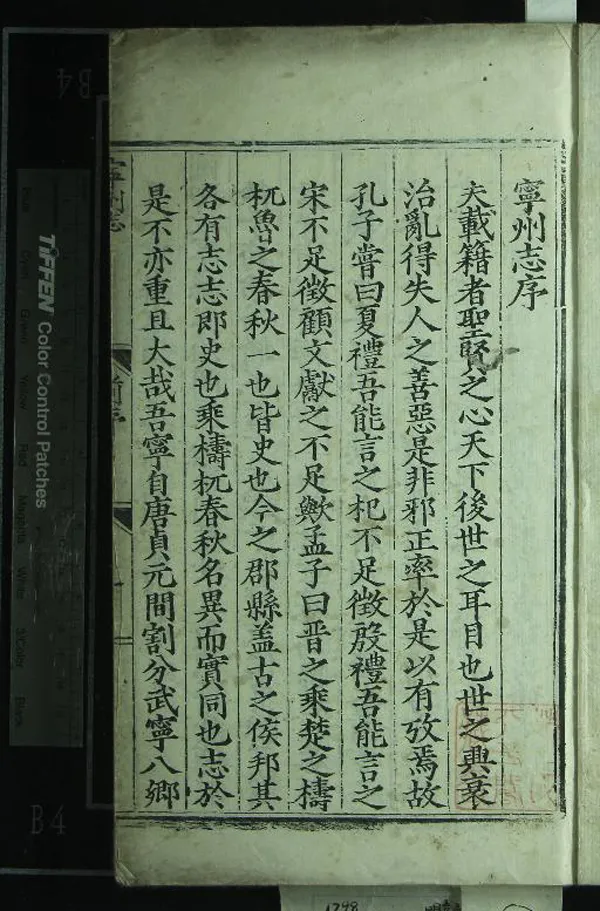 寧州志序
夫載籍者聖賢之心天下後世之耳目也世之興衰
治亂得失人之善惡是非邪正率於是以有攷焉故
孔子嘗曰夏禮吾能言之杞不足徵殷禮吾能言之
宋不足徵顧文獻之不足歟孟子曰晉之乘楚之檮
杌魯之春秋一也皆史也今之郡縣盖古之侯邦其
各有志志即史也乘檮杌春秋名異而實同也志於
是不亦重且大哉吾寧自唐貞元間割分武寧八鄉
寧州志
TIFFEN Color Control Patches
B4
B4
1748